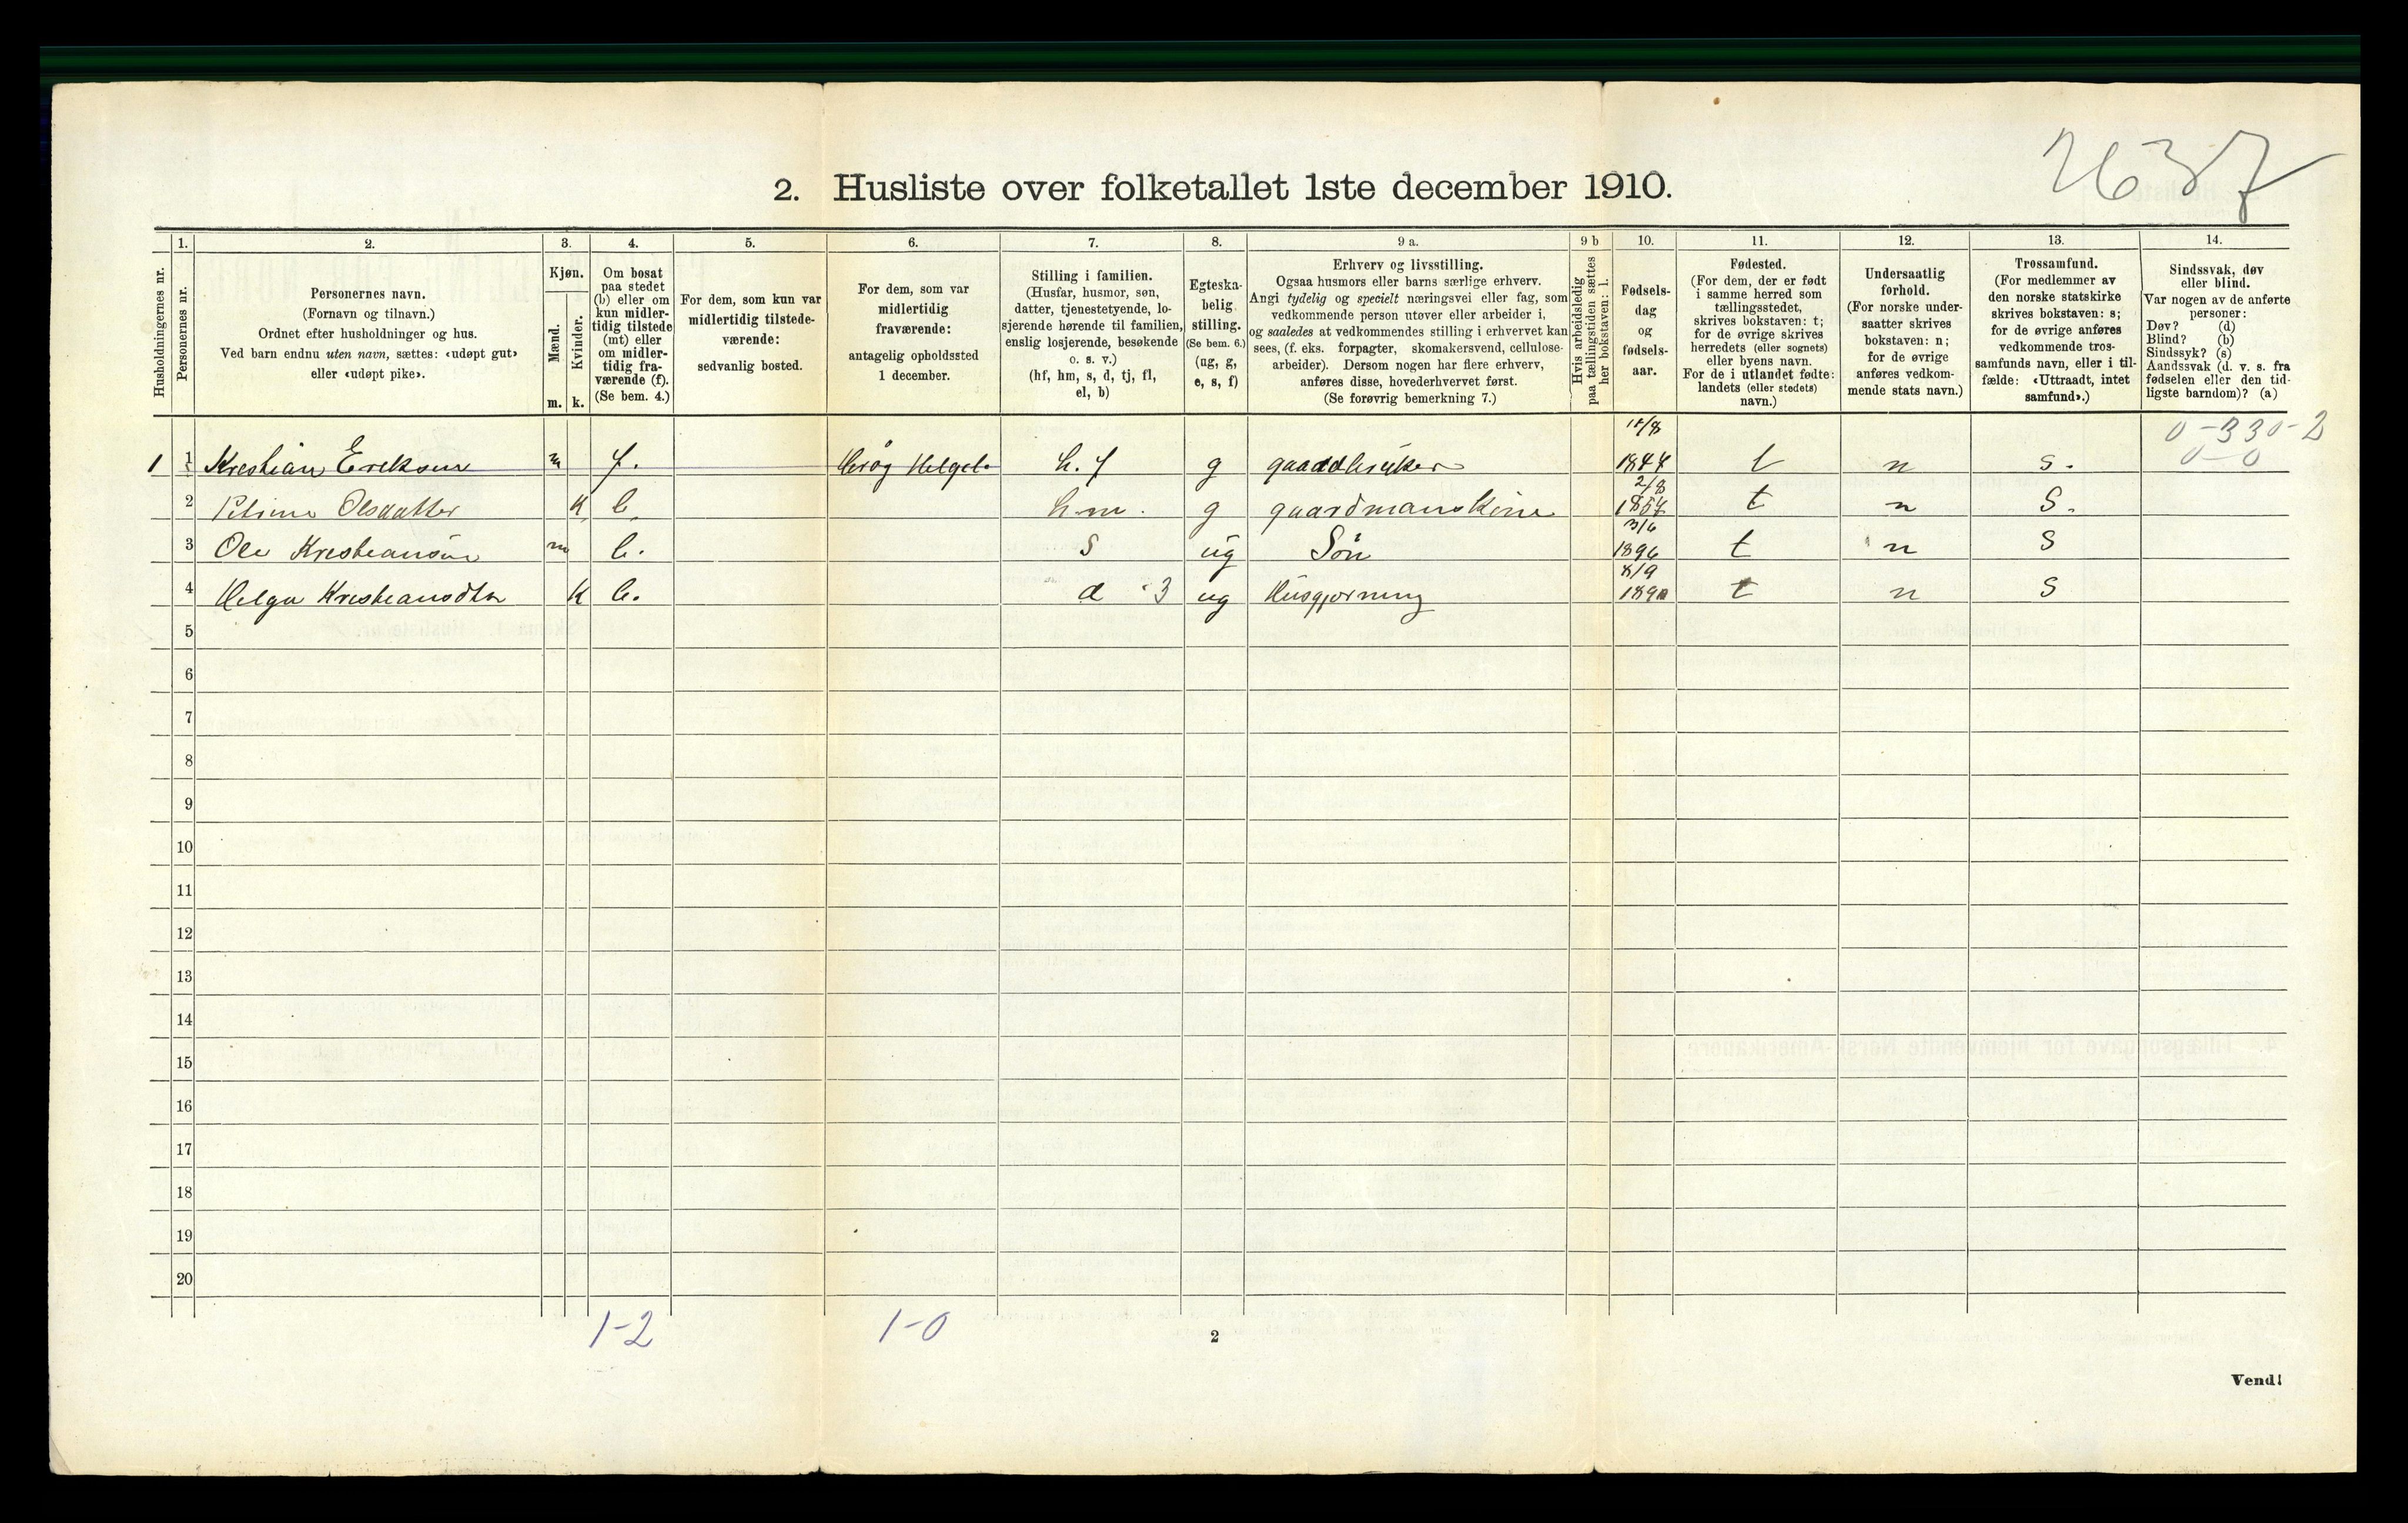 2637
2. Husliste over folketallet 1ste december 1910.
Husholdningernes nr.
1.
Personernes nr.
2.
Personernes navn.
(Fornavn og tilnavn.)
Ordnet efter husholdninger og hus.
Ved barn endnu uten navn, sættes: «udøpt gut»
eller «udøpt pike».
3.
Kjøn.
Mænd.
Kvinder.
m. k.
4.
Om bosat
paa stedet
(b) eller om
kun midler-
tidig tilstede
(mt) eller
om midler-
tidig fra-
værende (f).
(Se bem. 4.)
5.
For dem, som kun var
midlertidig tilstede-
værende:
sedvanlig bosted.
6.
For dem, som var
midlertidig
fraværende:
antagelig opholdssted
1 december.
7.
Stilling i familien.
(Husfar, husmor, søn,
datter, tjenestetyende, lo-
sjerende hørende til familien,
enslig losjerende, besøkende
o. s. v.)
(hf, hm, s, d, tj, fl,
el, b)
8.
Egteska-
belig
stilling.
(Se bem. 6.)
(ug, g,
e, s, f)
9 a.
Erhverv og livsstilling.
Ogsaa husmors eller barns særlige erhverv.
Angi tydelig og specielt næringsvei eller fag, som
vedkommende person utøver eller arbeider i,
og saaledes at vedkommendes stilling i erhvervet kan
sees, (f. eks. forpagter, skomakersvend, cellulose-
arbeider). Dersom nogen har flere erhverv,
anføres disse, hovederhvervet først.
(Se forøvrig bemerkning 7.)
9 b
Hvis arbeidsledig
paa tællingstiden sættes
her bokstaven: l.
10.
Fødsels-
dag
og
fødsels-
aar.
11.
Fødested.
(For dem, der er født
i samme herred som
tællingsstedet,
skrives bokstaven: t;
for de øvrige skrives
herredets (eller sognets)
eller byens navn.
For de i utlandet fødte:
landets (eller stedets)
navn.)
12.
Undersaatlig
forhold.
(For norske under-
saatter skrives
bokstaven: n;
for de øvrige
anføres vedkom-
mende stats navn.)
13.
Trossamfund.
(For medlemmer av
den norske statskirke
skrives bokstaven: s;
for de øvrige anføres
vedkommende tros-
samfunds navn, eller i til-
fælde: «Uttraadt, intet
samfund».)
14.
Sindssvak, døv
eller blind.
Var nogen av de anførte
personer:
Døv? (d)
Blind? (b)
Sindssyk? (s)
Aandssvak (d. v. s. fra
fødselen eller den tid-
ligste barndom)? (a)
0-330-2
0-0
1 1 Krestian Ereksen m f. Herøg Helgel. h.f g gaardbruker 1844 t n s.
2 Petrine Olsdatter K b. hm. g gaardmanskone 2/8 1857 t n S.
3 Ole Kresteansøn m b. S ug Søn 3/6 1896 t n S
4 Helga Kresteansdtr K b. d 3 ug Husgjorning 8/9 1890 t n S
5
6
7
8
9
10
11
12
13
14
15
16
17
18
19
20
1-2 1-0
2
Vend!